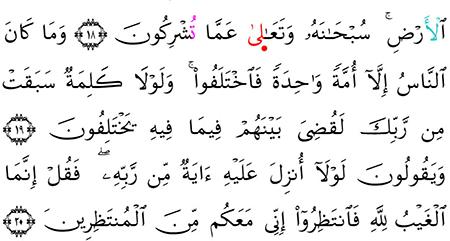 ٱلْأَرْضِ ۚ سُبْحَـٰنَهُۥ وَتَعَـٰلَىٰ عَمَّا تُشْرِكُونَ ﴿١٨﴾ وَمَا كَانَ
ٱلنَّاسُ إِلَّآ أُمَّةً وَٰحِدَةً فَٱخْتَلَفُوا۟ ۚ وَلَوْلَا كَلِمَةٌ سَبَقَتْ
مِن رَّبِّكَ لَقُضِىَ بَيْنَهُمْ فِيمَا فِيهِ يَخْتَلِفُونَ ﴿١٩﴾
وَيَقُولُونَ لَوْلَآ أُنزِلَ عَلَيْهِ ءَايَةٌ مِّن رَّبِّهِۦ ۖ فَقُلْ إِنَّمَا
ٱلْغَيْبُ لِلَّهِ فَٱنتَظِرُوٓا۟ إِنِّى مَعَكُم مِّنَ ٱلْمُنتَظِرِينَ ﴿٢٠﴾